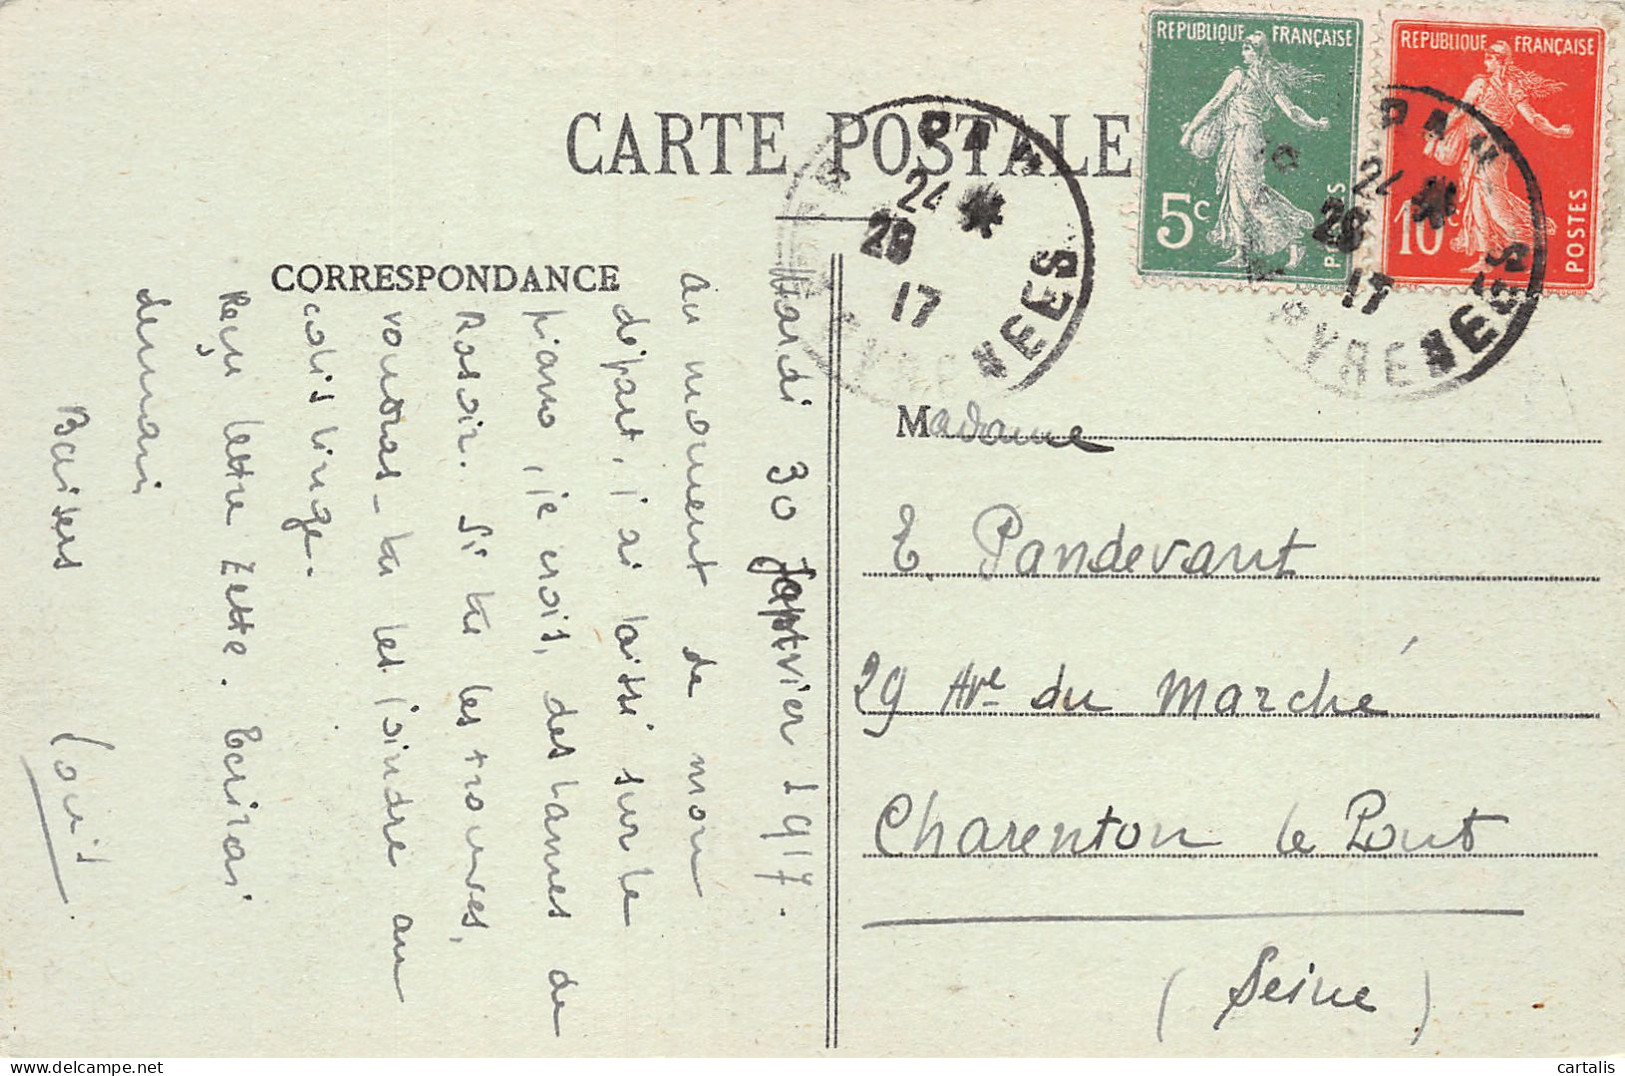 REPUBLIQUE FRANÇAISE
5c
POSTES
REPUBLIQUE FRANÇAISE
10c
POSTES
CARTE POSTALE
PAU
24
17
PYRENEES
PAU
24
17
PYRENEES
CORRESPONDANCE
Mardi 30 Janvier 1917.
au moment de mon
départ, j'ai laissé sur le
piano, je crois, des lames de
Rasoir. Si tu les trouves,
voudras-tu les joindre au
colis linge.
Reçu lettre Zette. Ecrirai
demain
Baisers
Louis
Madame
E. Pandevant
29 Ave du Marché
Charenton le Pont
(Seine)
cartalis